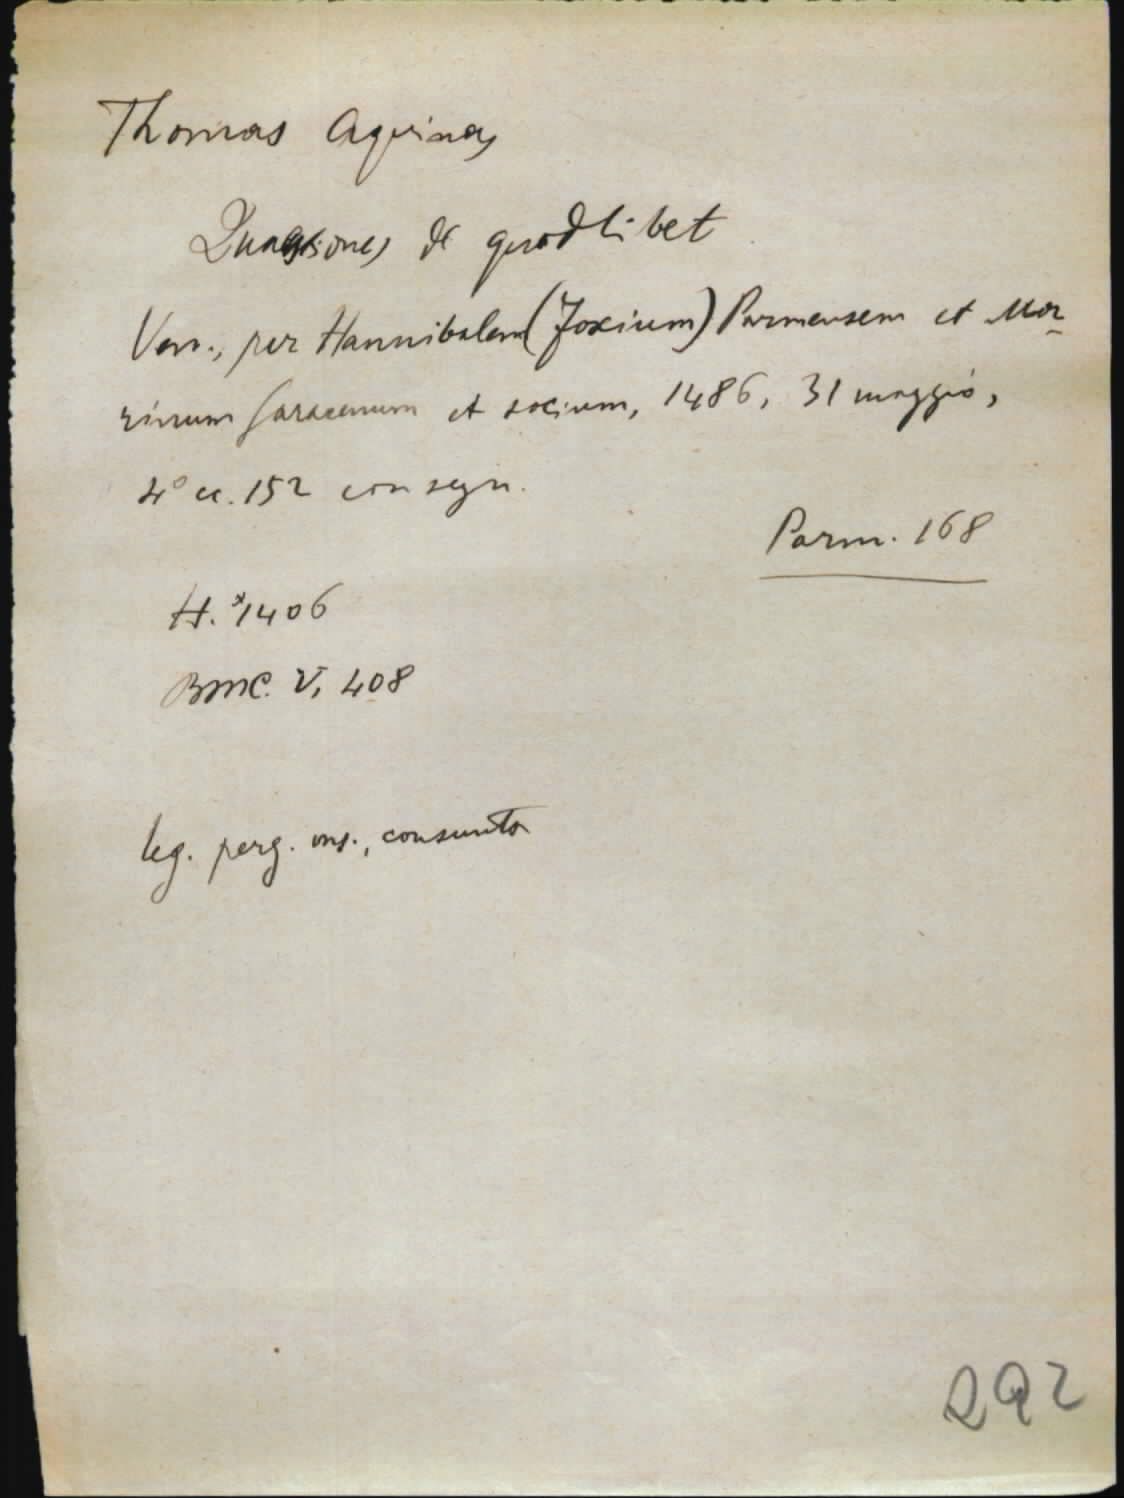 Thomas Aquinas
Quaestiones de quodlibet
Ven., per Hannibalem (Foxium) Parmensem et Ma-
rinum Saracenum et socium, 1486, 31 maggio,
4° cc. 152 con segn.
Parm. 168
H. *1406
BMC. V, 408
leg. perg. ms., consunta
292